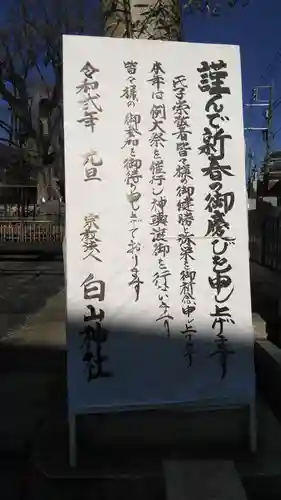 謹んで新春の御慶びを申し上げます
氏子崇敬者皆々様の御健勝と弥栄を御祈念申し上げ
本年は例大祭を催行し神輿渡御を行ないます
皆々様の御参加を御待ち申し上げております
令和弐年 元旦
宗教法人 白山神社